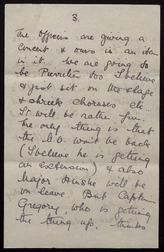 3.
The officers are giving a
Concert & ours is an item
in it. We are going to
be Pierrettes too I believe
& just sit on the stage
& shriek choruses etc.
It will be rather fun.
The only thing is that
the C.O. won't be back
(I believe he is getting
an extension) & also
Major Huskie will be
on leave. But Captain
Gregory, who is getting
the thing up, thinks